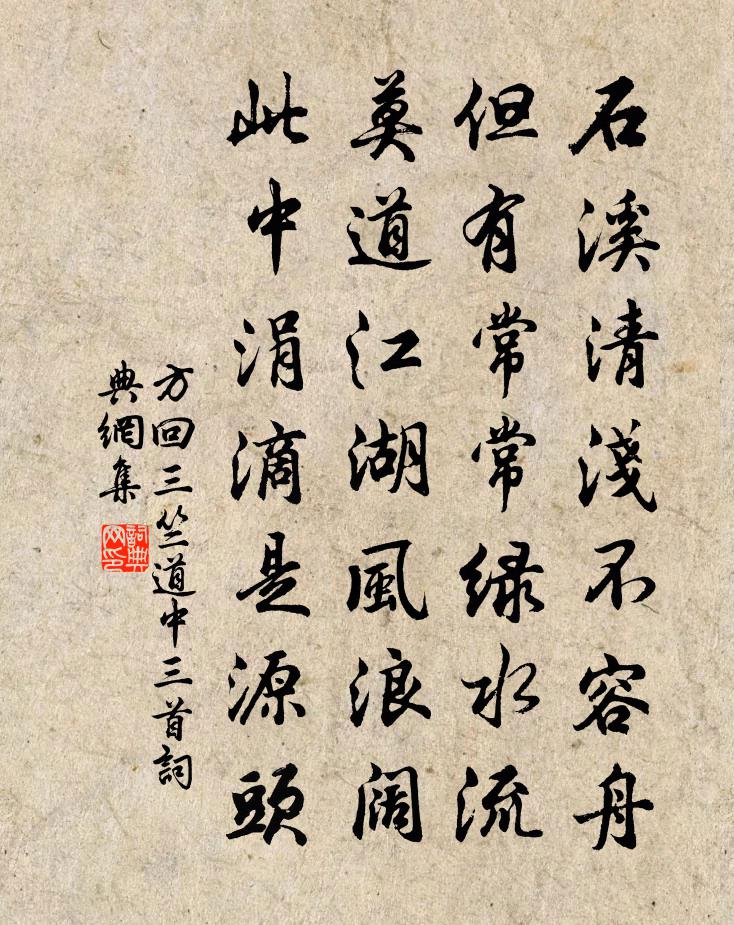 石溪清淺不容舟
但有常常綠水流
莫道江湖風浪闊
此中涓滴是源頭
方回三竺道中三首詞
典網集
詞典
网印